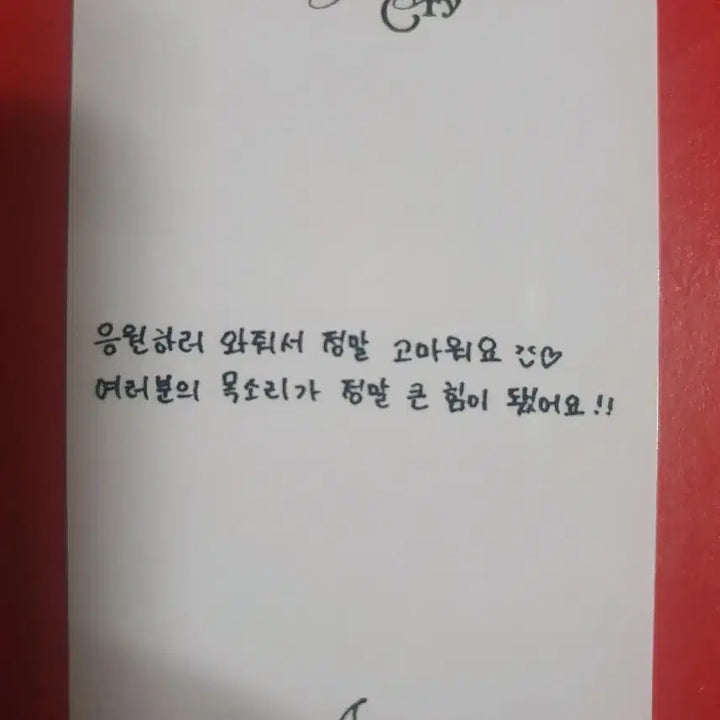 Cry
응원하러 와줘서 정말 고마워요 :) ♡
여러분의 목소리가 정말 큰 힘이 됐어요!!